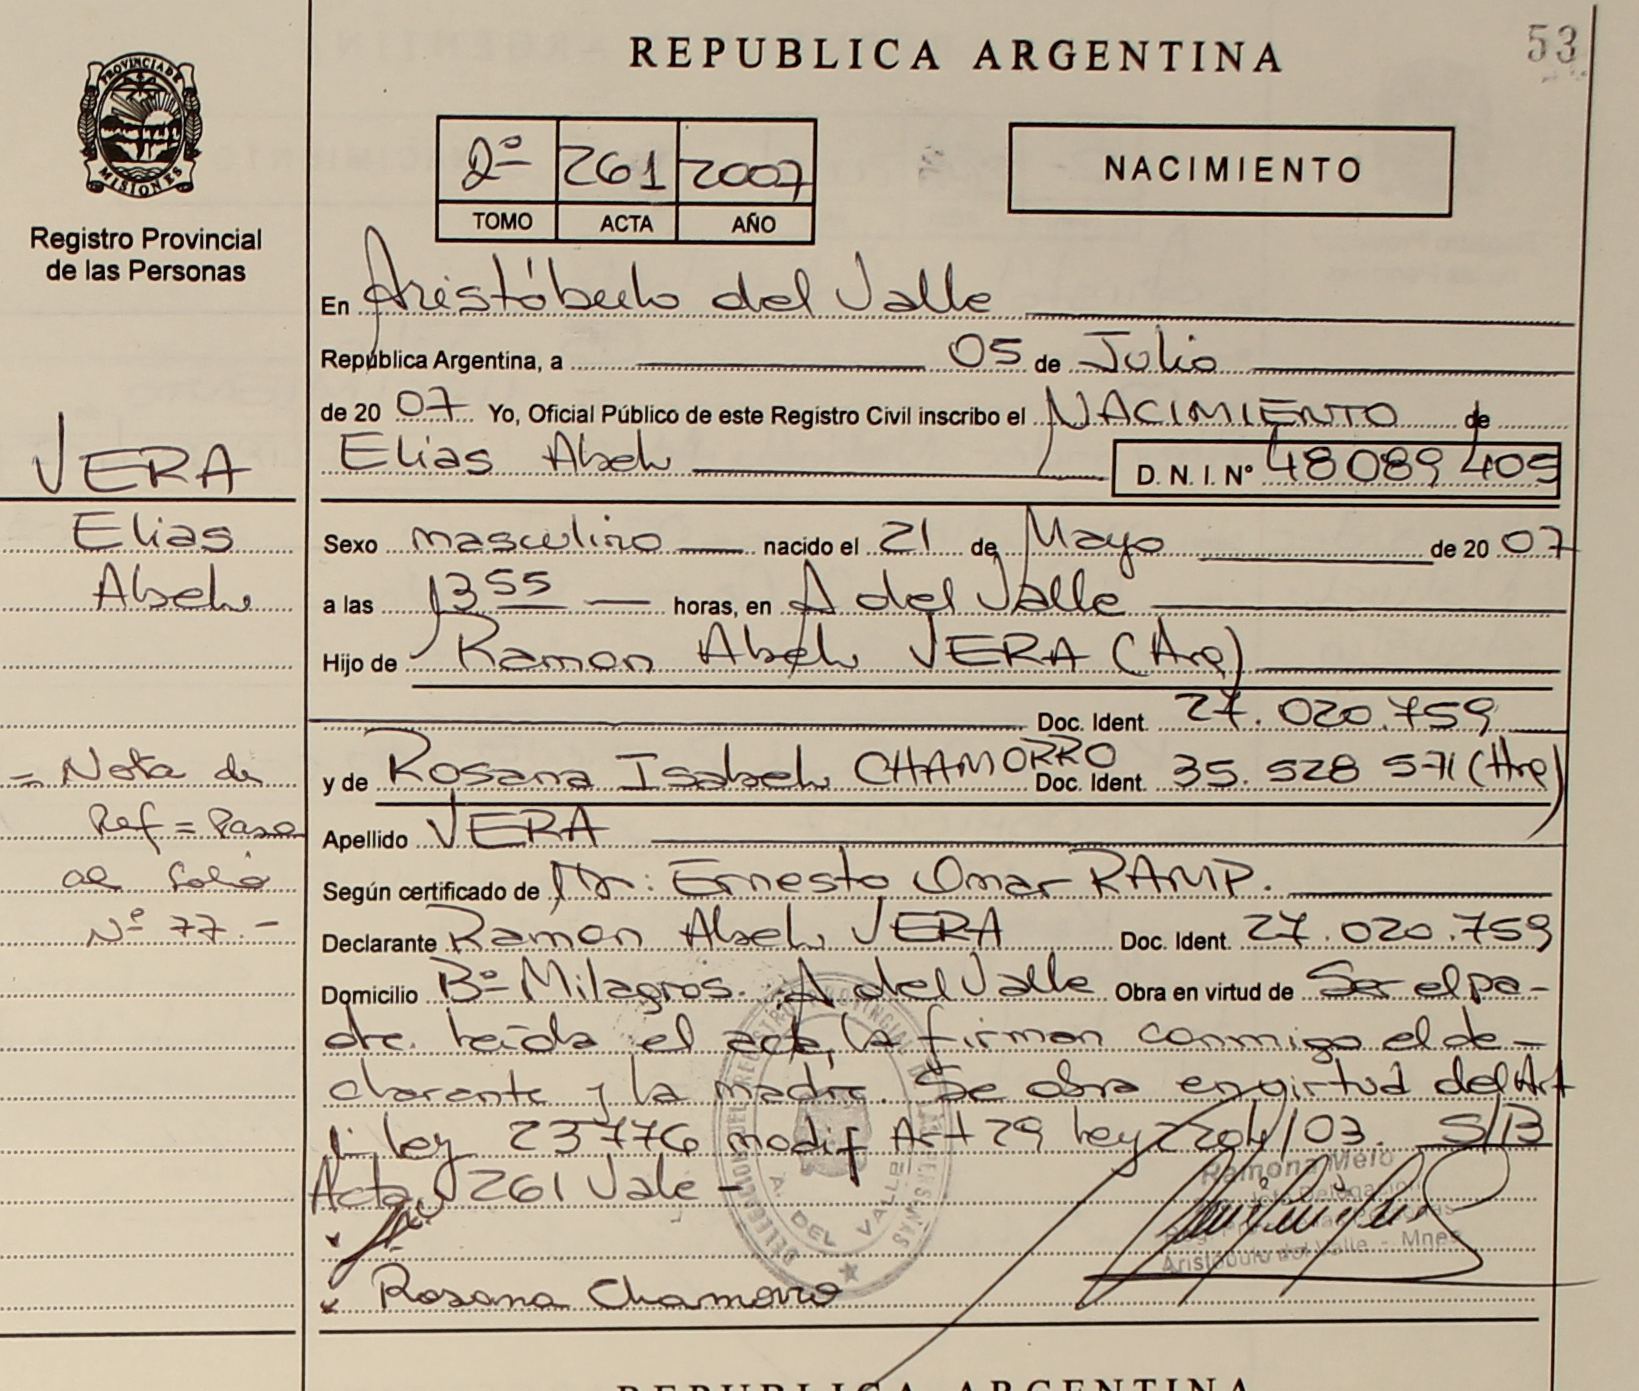 53
REPUBLICA ARGENTINA
PROVINCIA DE
MISIONES
Registro Provincial
de las Personas
2º 261 2007
TOMO ACTA AÑO
NACIMIENTO
En Aristóbulo del Valle
República Argentina, a 05 de Julio
de 20 07 Yo, Oficial Público de este Registro Civil inscribo el NACIMIENTO de
Elias Abel D. N. I. Nº 48089409
VERA
Elias
Abel
Sexo masculino nacido el 21 de Mayo de 20 07
a las 13 55 horas, en A del Valle
Hijo de Ramon Abel VERA (Arg)
Doc. Ident. 27.020.759
y de Rosana Isabel CHAMORRO Doc. Ident. 35.528 571 (Arg)
Apellido VERA
Según certificado de Dr: Ernesto Omar RAMP.
Declarante Ramon Abel VERA Doc. Ident. 27.020.759
Domicilio Bº Milagros. A del Valle Obra en virtud de Ser el pa-
dre. Leida el acta, la firman conmigo el de-
clarante y la madre. Se obra en virtud del Art
1: Ley 23776 modif Art 29 Ley 2204/03. S/B
Acta 261 Vale -
= Nota de
Ref = Paso
al folio
Nº 77.-
Rosana Chamorro
DELEGACION DEL REGISTRO PROVINCIAL DE LAS PERSONAS
A. DEL VALLE
Ramona Melo
Jefe Delegación
Reg. Prov. de las Personas
Aristóbulo del Valle - Mnes
REPUBLICA ARGENTINA